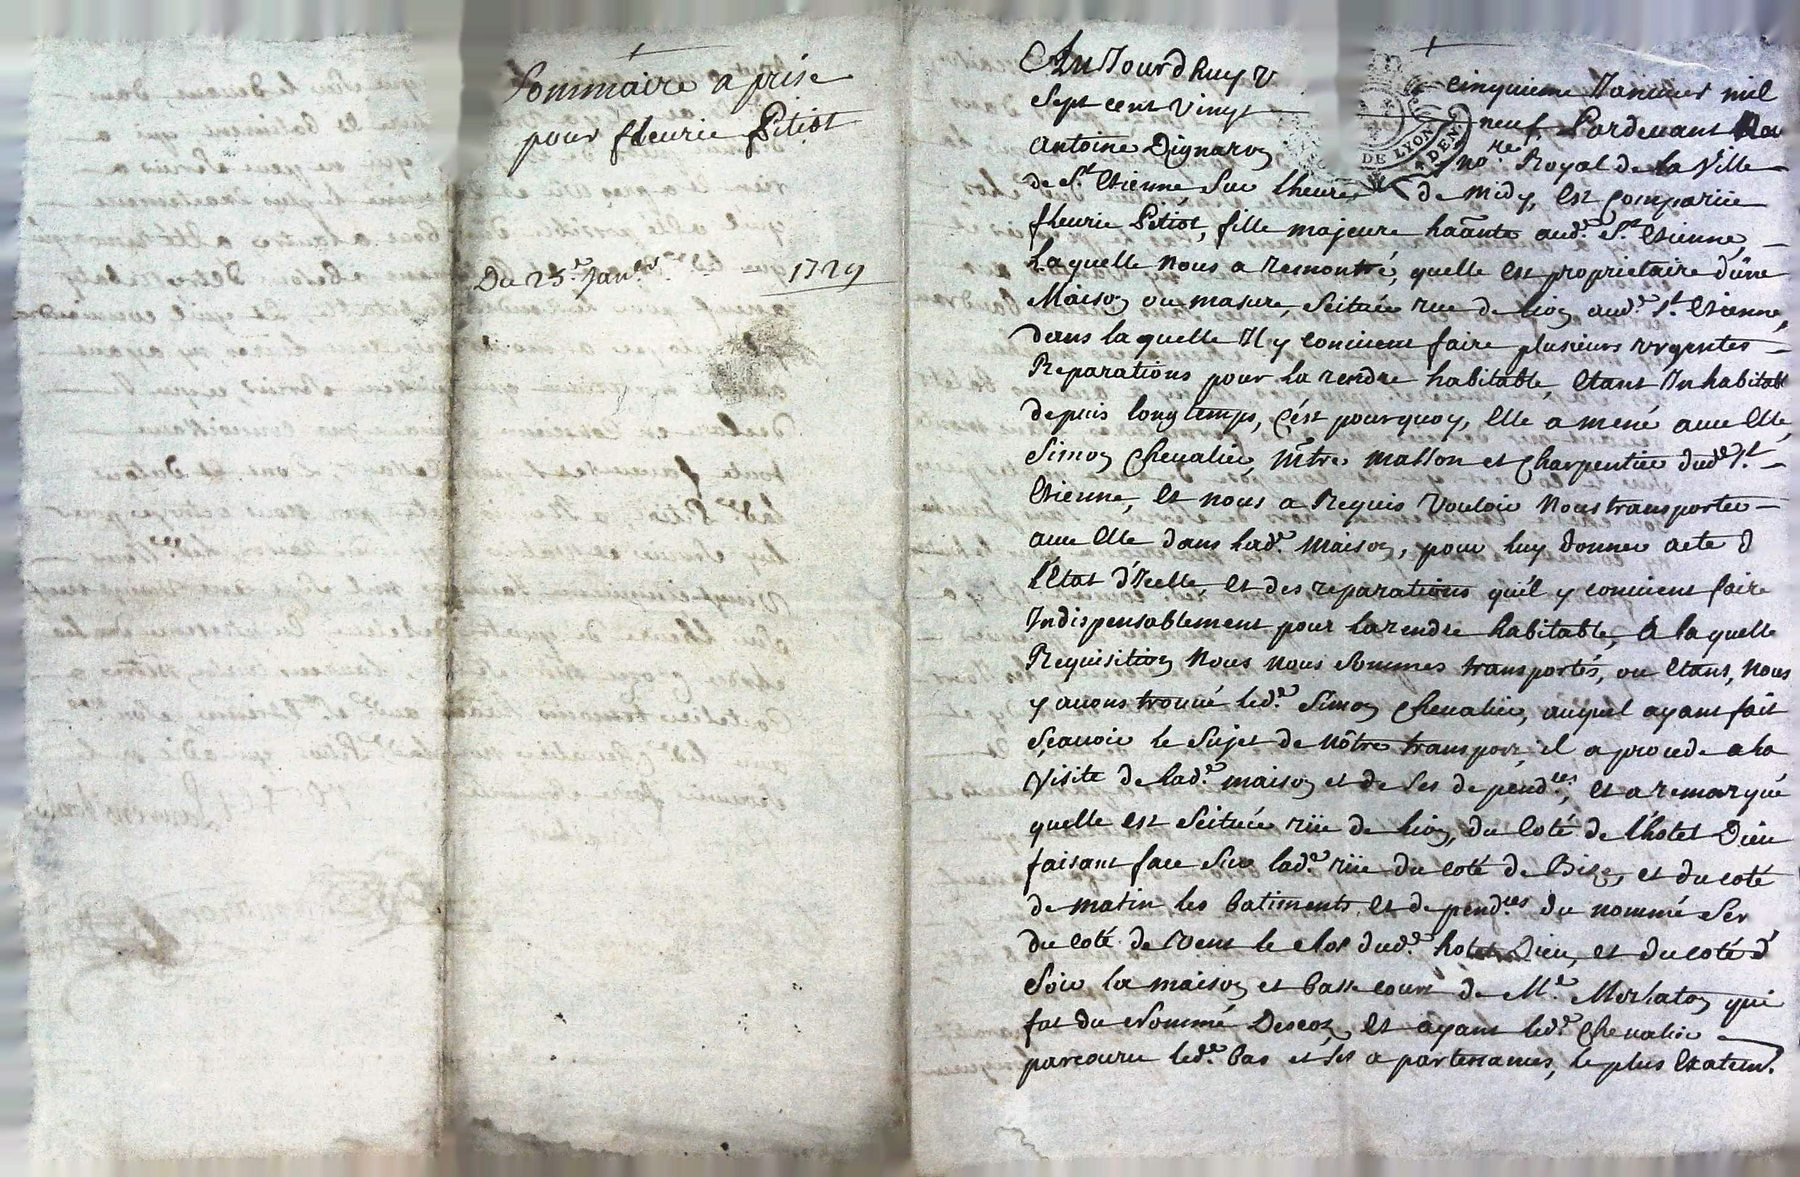 Sommaire a prise
pour fleurie Pitiot
Du 25.e Janv.er 1729
Aujourdhuy v
cinquieme Janvier mil
Sept cent vingt
neuf Pardevant
Antoine Dignaron
no.re Royal de la Ville
de St. Etienne sur lheure de midy, est comparüe
fleurie Pitiot, fille majeure haânte aud.e St. Etienne,
Laquelle nous a remontré, quelle est proprietaire d'ûne
Maison ou masure, scituée rue de Lion aud.e St. Etienne,
dans laquelle Il y convient faire plusieurs urgentes
Reparations pour la rendre habitable, Etant Inhabitabl
depuis longtemps, C'ést pourquoy, Elle a mené avec Elle,
Simon Chevalier, mtre masson et Charpentier dud.e St.
Etienne, Et nous a Requis Vouloir Nous transporter
avec Elle dans lad.e maison, pour luy donner acte d
l'Etat d'Icelle, Et des reparations qu'il y convient faire
Indispensablement pour la rendre habitable, A laquelle
Requisition Nous nous sommes transportés, ou Etant, nous
y avons trouvé led.e Simon Chevalier, auquel ayant fait
sçavoir le Sujet de nôtre transport, il a procede a la
Visite de lad.e maison et de ses depend.ces, Et a remarqué
quelle est scituée rüe de Lion, du Coté de l'hotel Dieu
faisant face sur lad.e rüe du coté de Bize, et du coté
de matin les batiments Et depend.ces du nommé Ser
du coté de Vent le clos dud.e hotel Dieu, et du coté d
soir la maison et basse cour de M.e Merlaton qui
fut du Nommé Descot, Et ayant led.e Chevalier
parcouru led.e bas et ses apartenances, le plus Exatem.t